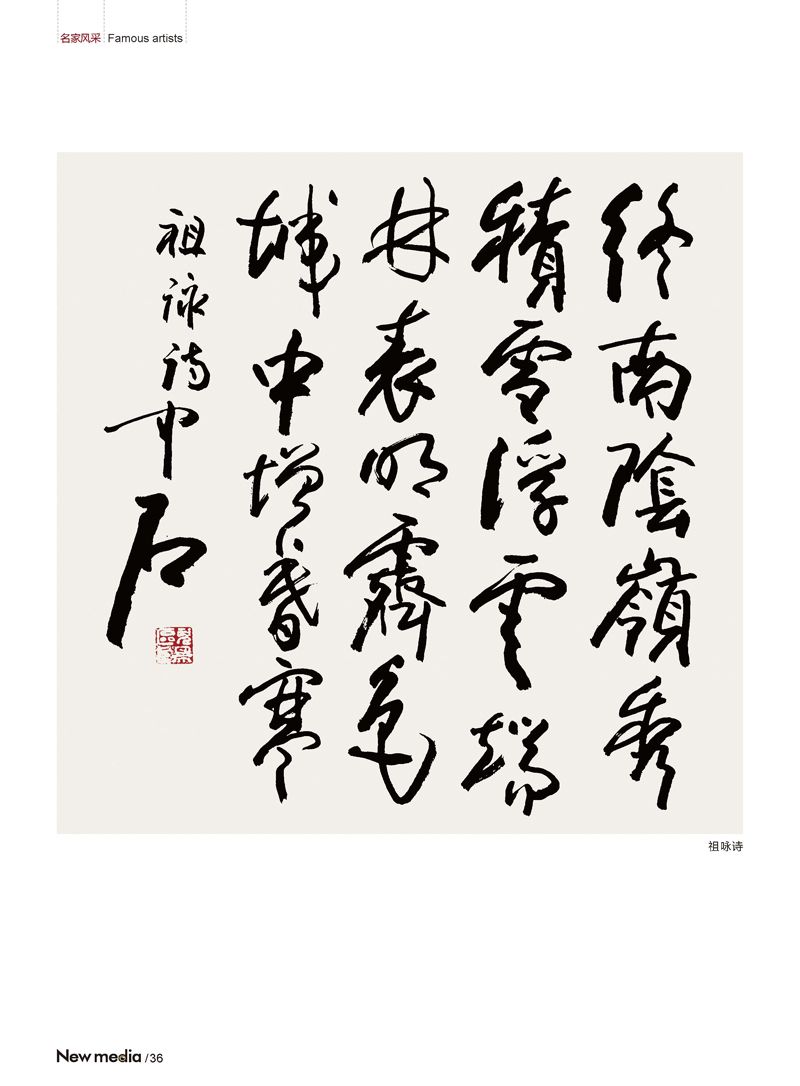 名家风采 Famous artists
终南陰嶺秀
積雪浮雲端
林表明霽色
城中增暮寒
祖詠詩中石
祖咏诗
New media /36